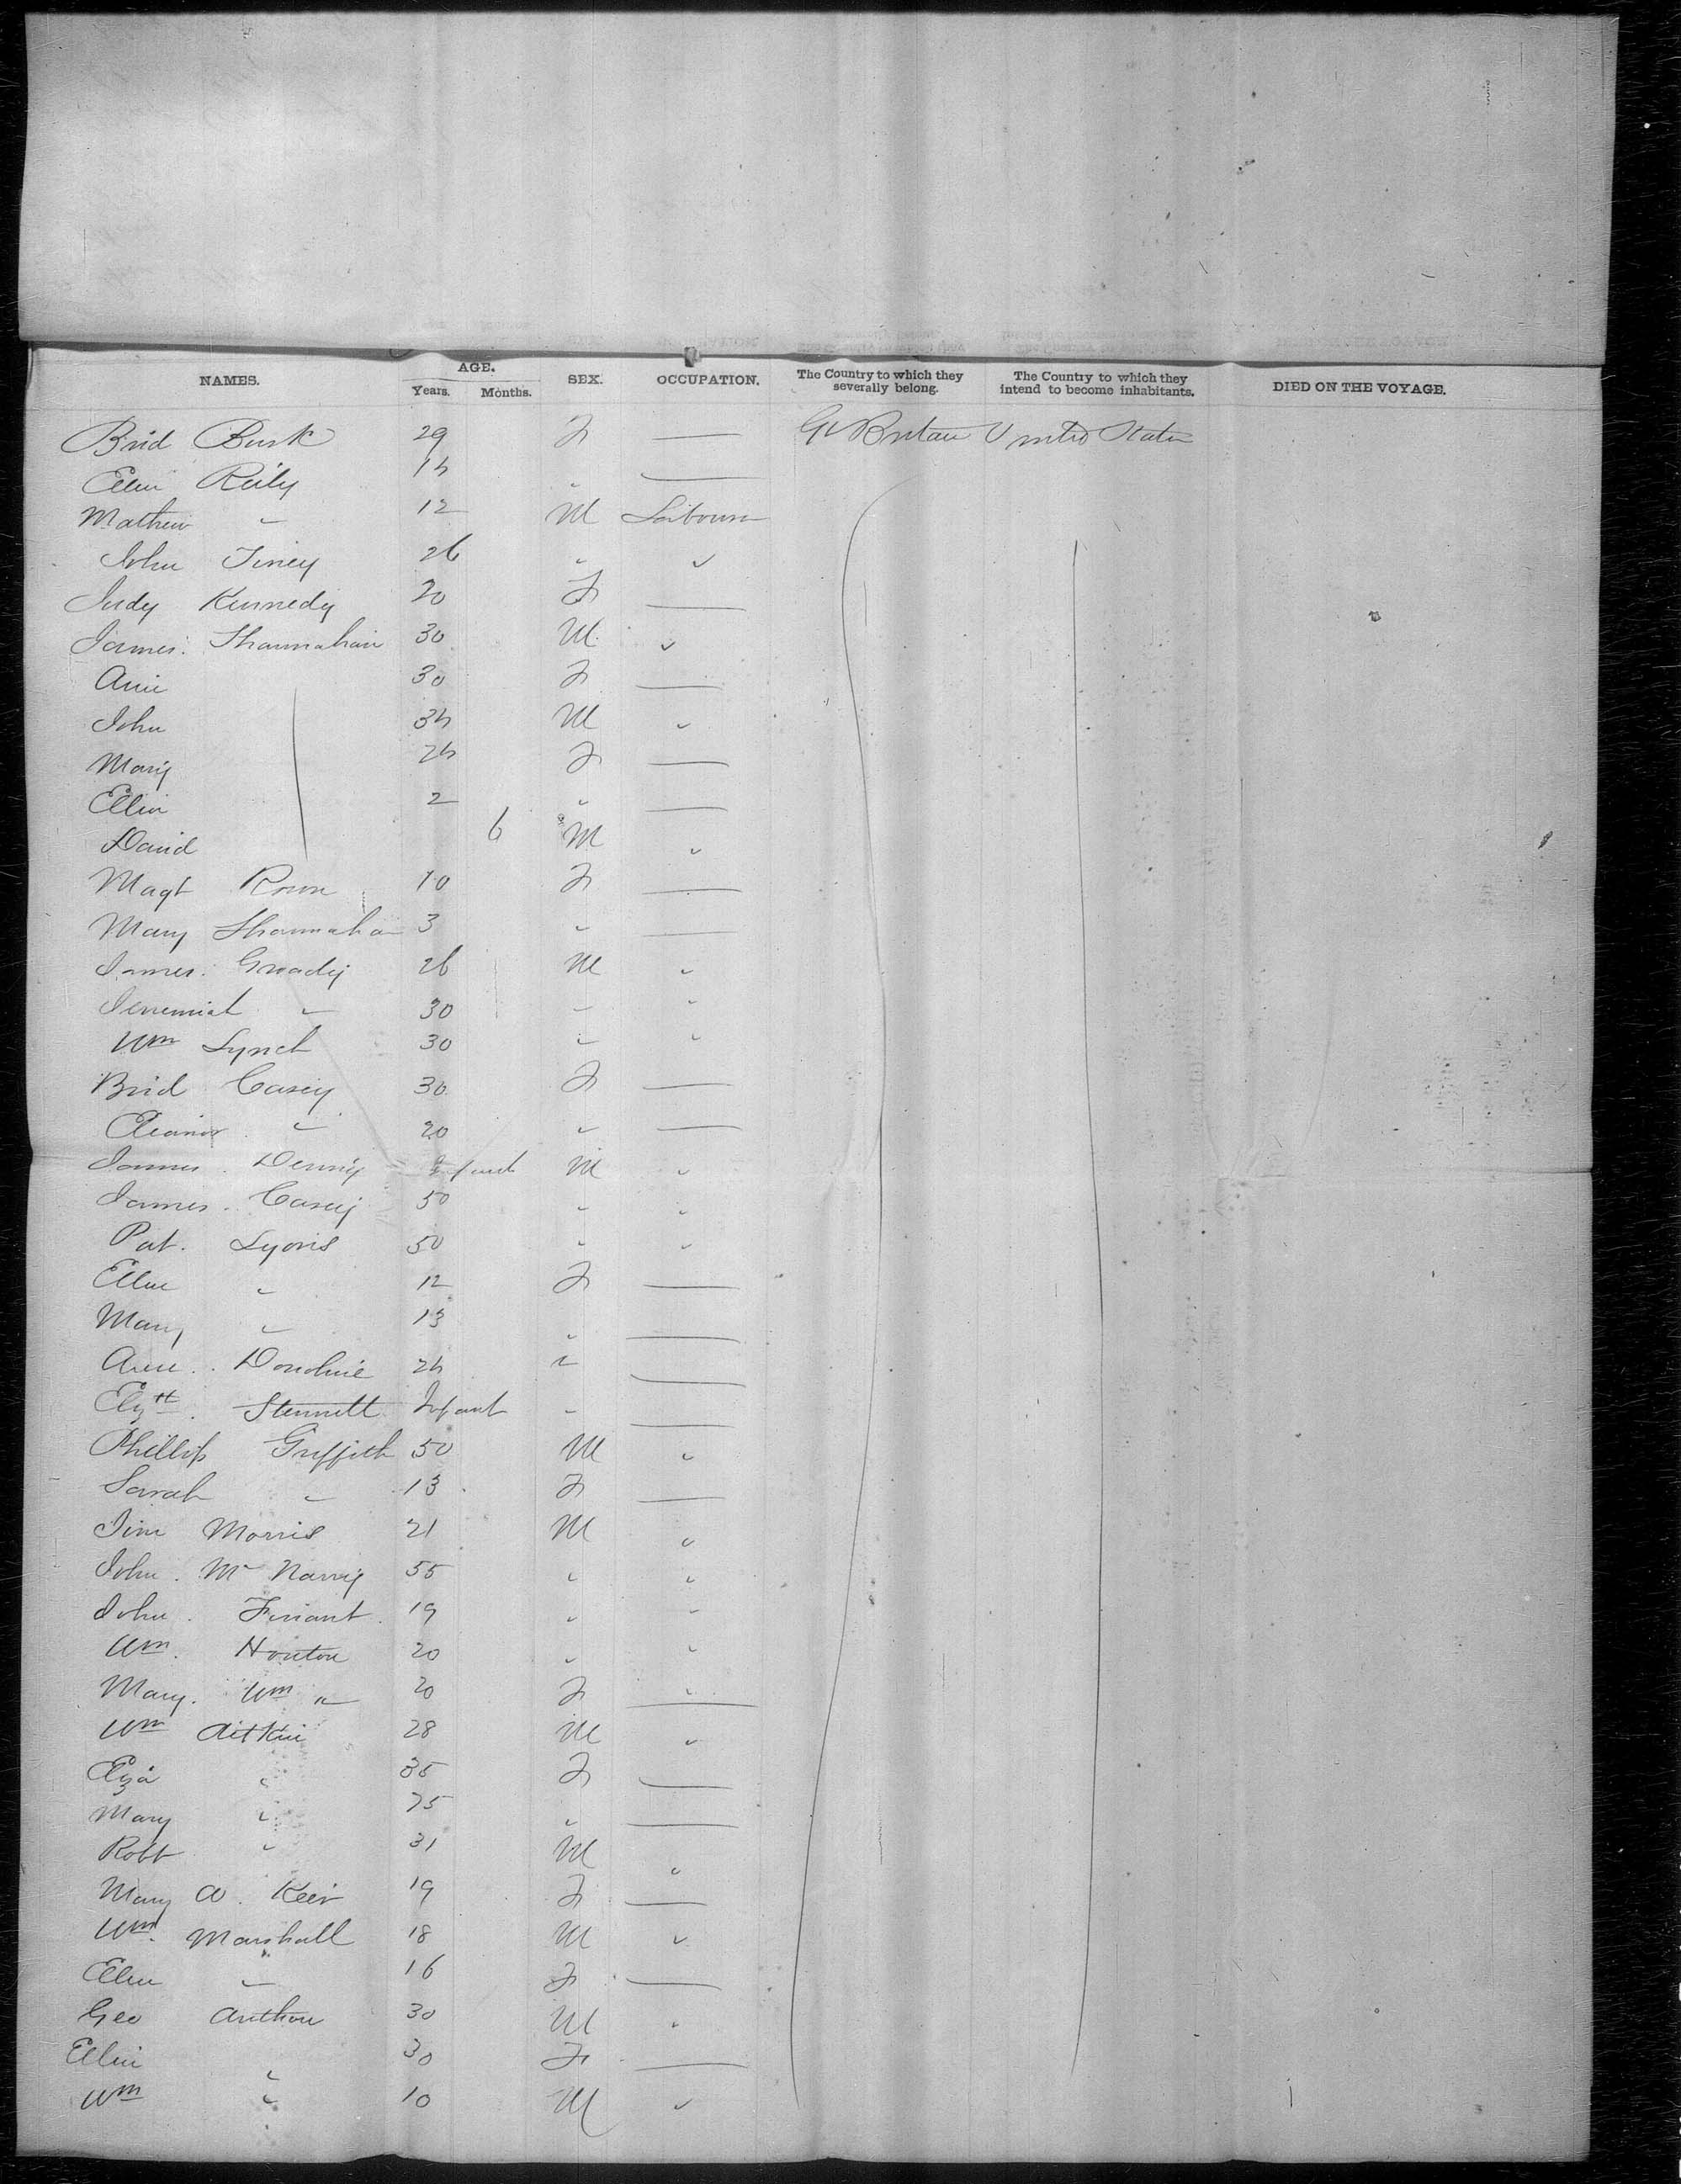 NAMES. AGE. Years. Months. SEX. OCCUPATION. The Country to which they severally belong. The Country to which they intend to become inhabitants. DIED ON THE VOYAGE.
Brid Burk 29 F — Gt Britain United States
Ellen Reily 14 " —
Mathew " 12 M Labourer
John Finey 26 " "
Judy Kennedy 20 F —
James Shannahan 30 M "
Ann 30 F —
John 34 M "
Mary 24 F —
Ellen 2 " —
David 6 M "
Magt 10 F —
Mary Shannahan 3 " —
James Gready 26 M "
Jeremiah " 30 " "
Wm Lynch 30 " "
Brid Casey 30 F —
Eleanor " 20 " —
James Denny Infant M "
James Casey 50 " "
Pat. Lyons 50 " "
Ellen " 12 F —
Mary " 13 " —
Ann Donohue 24 " —
Elzth Stennett Infant " —
Phillip Griffith 50 M "
Sarah " 13 F —
Tim Morris 21 M "
John 55 " "
John Finant 19 " "
Wm. Houton 20 " "
Mary. Wm " 20 F " —
Wm Aitkin 28 M "
Eza " 35 F —
Mary " 75 " —
Robt " 31 M "
Mary A. Keir 19 F —
Wm. Marshall 18 M "
Ellen " 16 F —
Geo Anthou 30 M "
Ellen " 30 F —
Wm " 10 M "